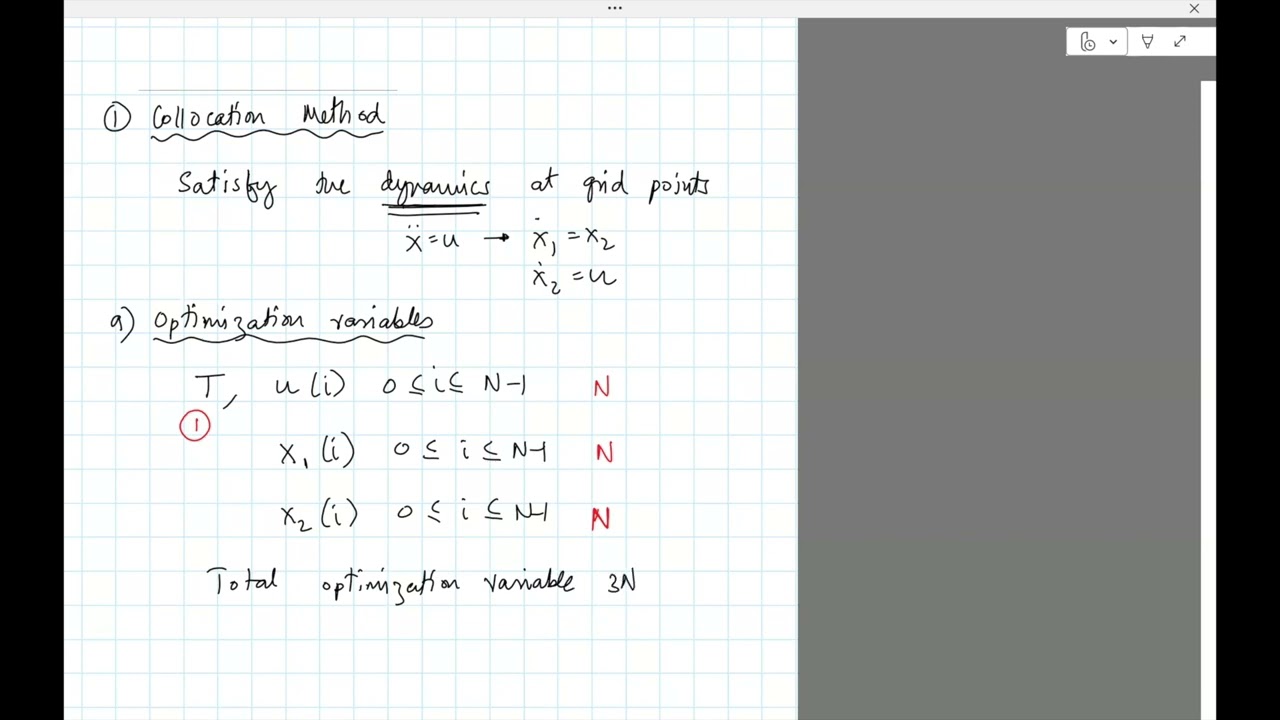 ① Collocation Method
Satisfy the dynamics at grid points
ẍ = u → ẋ₁ = x₂
ẋ₂ = u
a) Optimization variables
T, u(i) 0 ≤ i ≤ N-1 N
①
x₁(i) 0 ≤ i ≤ N-1 N
x₂(i) 0 ≤ i ≤ N-1 N
Total optimization variable 3N